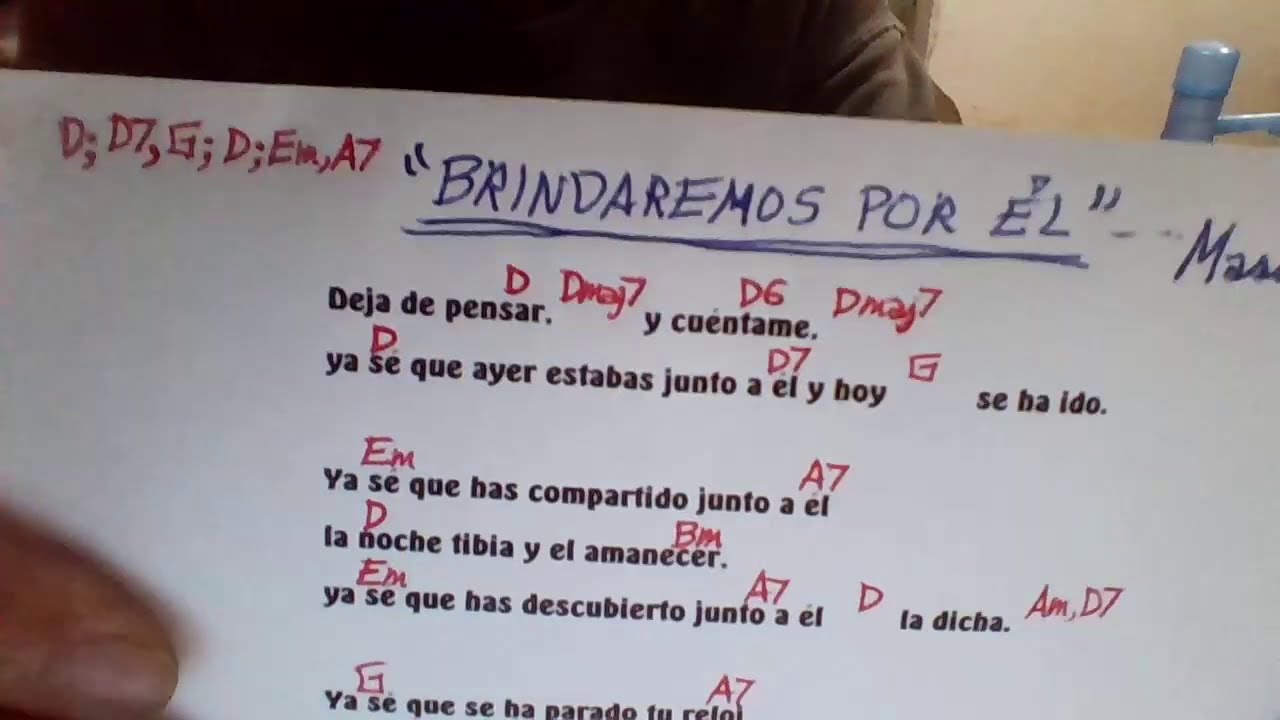 D; D7, G; D; Em, A7 "BRINDAREMOS POR ÉL" - -
D Dmaj7 D6 Dmaj7
Deja de pensar. y cuéntame.
D D7 G
ya sé que ayer estabas junto a él y hoy se ha ido.
Em A7
Ya sé que has compartido junto a él
D Bm
la noche tibia y el amanecer.
Em A7 D Am, D7
ya sé que has descubierto junto a él la dicha.
G A7
Ya sé que se ha parado tu reloj